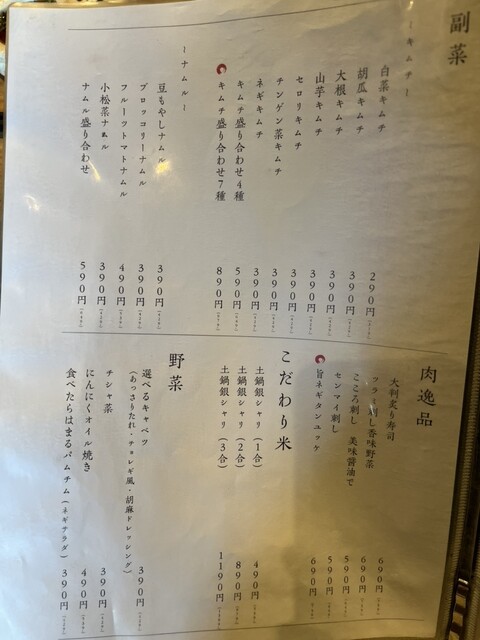 副菜
～キムチ～
白菜キムチ 290円
胡瓜キムチ 390円
大根キムチ 390円
山芋キムチ 390円
セロリキムチ 390円
チンゲン菜キムチ 390円
ネギキムチ 390円
キムチ盛り合わせ4種 590円
キムチ盛り合わせ7種 890円
～ナムル～
豆もやしナムル 390円
ブロッコリーナムル 390円
フルーツトマトナムル 490円
小松菜ナムル 390円
ナムル盛り合わせ 590円
肉逸品
大判炙り寿司 690円
フラミ刺し香味野菜 690円
こころ刺し 美味醤油で 590円
センマイ刺し 590円
旨ネギタンユッケ 690円
こだわり米
土鍋銀シャリ(1合) 490円
土鍋銀シャリ(2合) 890円
土鍋銀シャリ(3合) 1190円
野菜
選べるキャベツ
(あっさりたれ・チョレギ風・胡麻ドレッシング) 390円
チシャ菜 390円
にんにくオイル焼き 490円
食べたらはまるパムチム(ネギサラダ) 390円